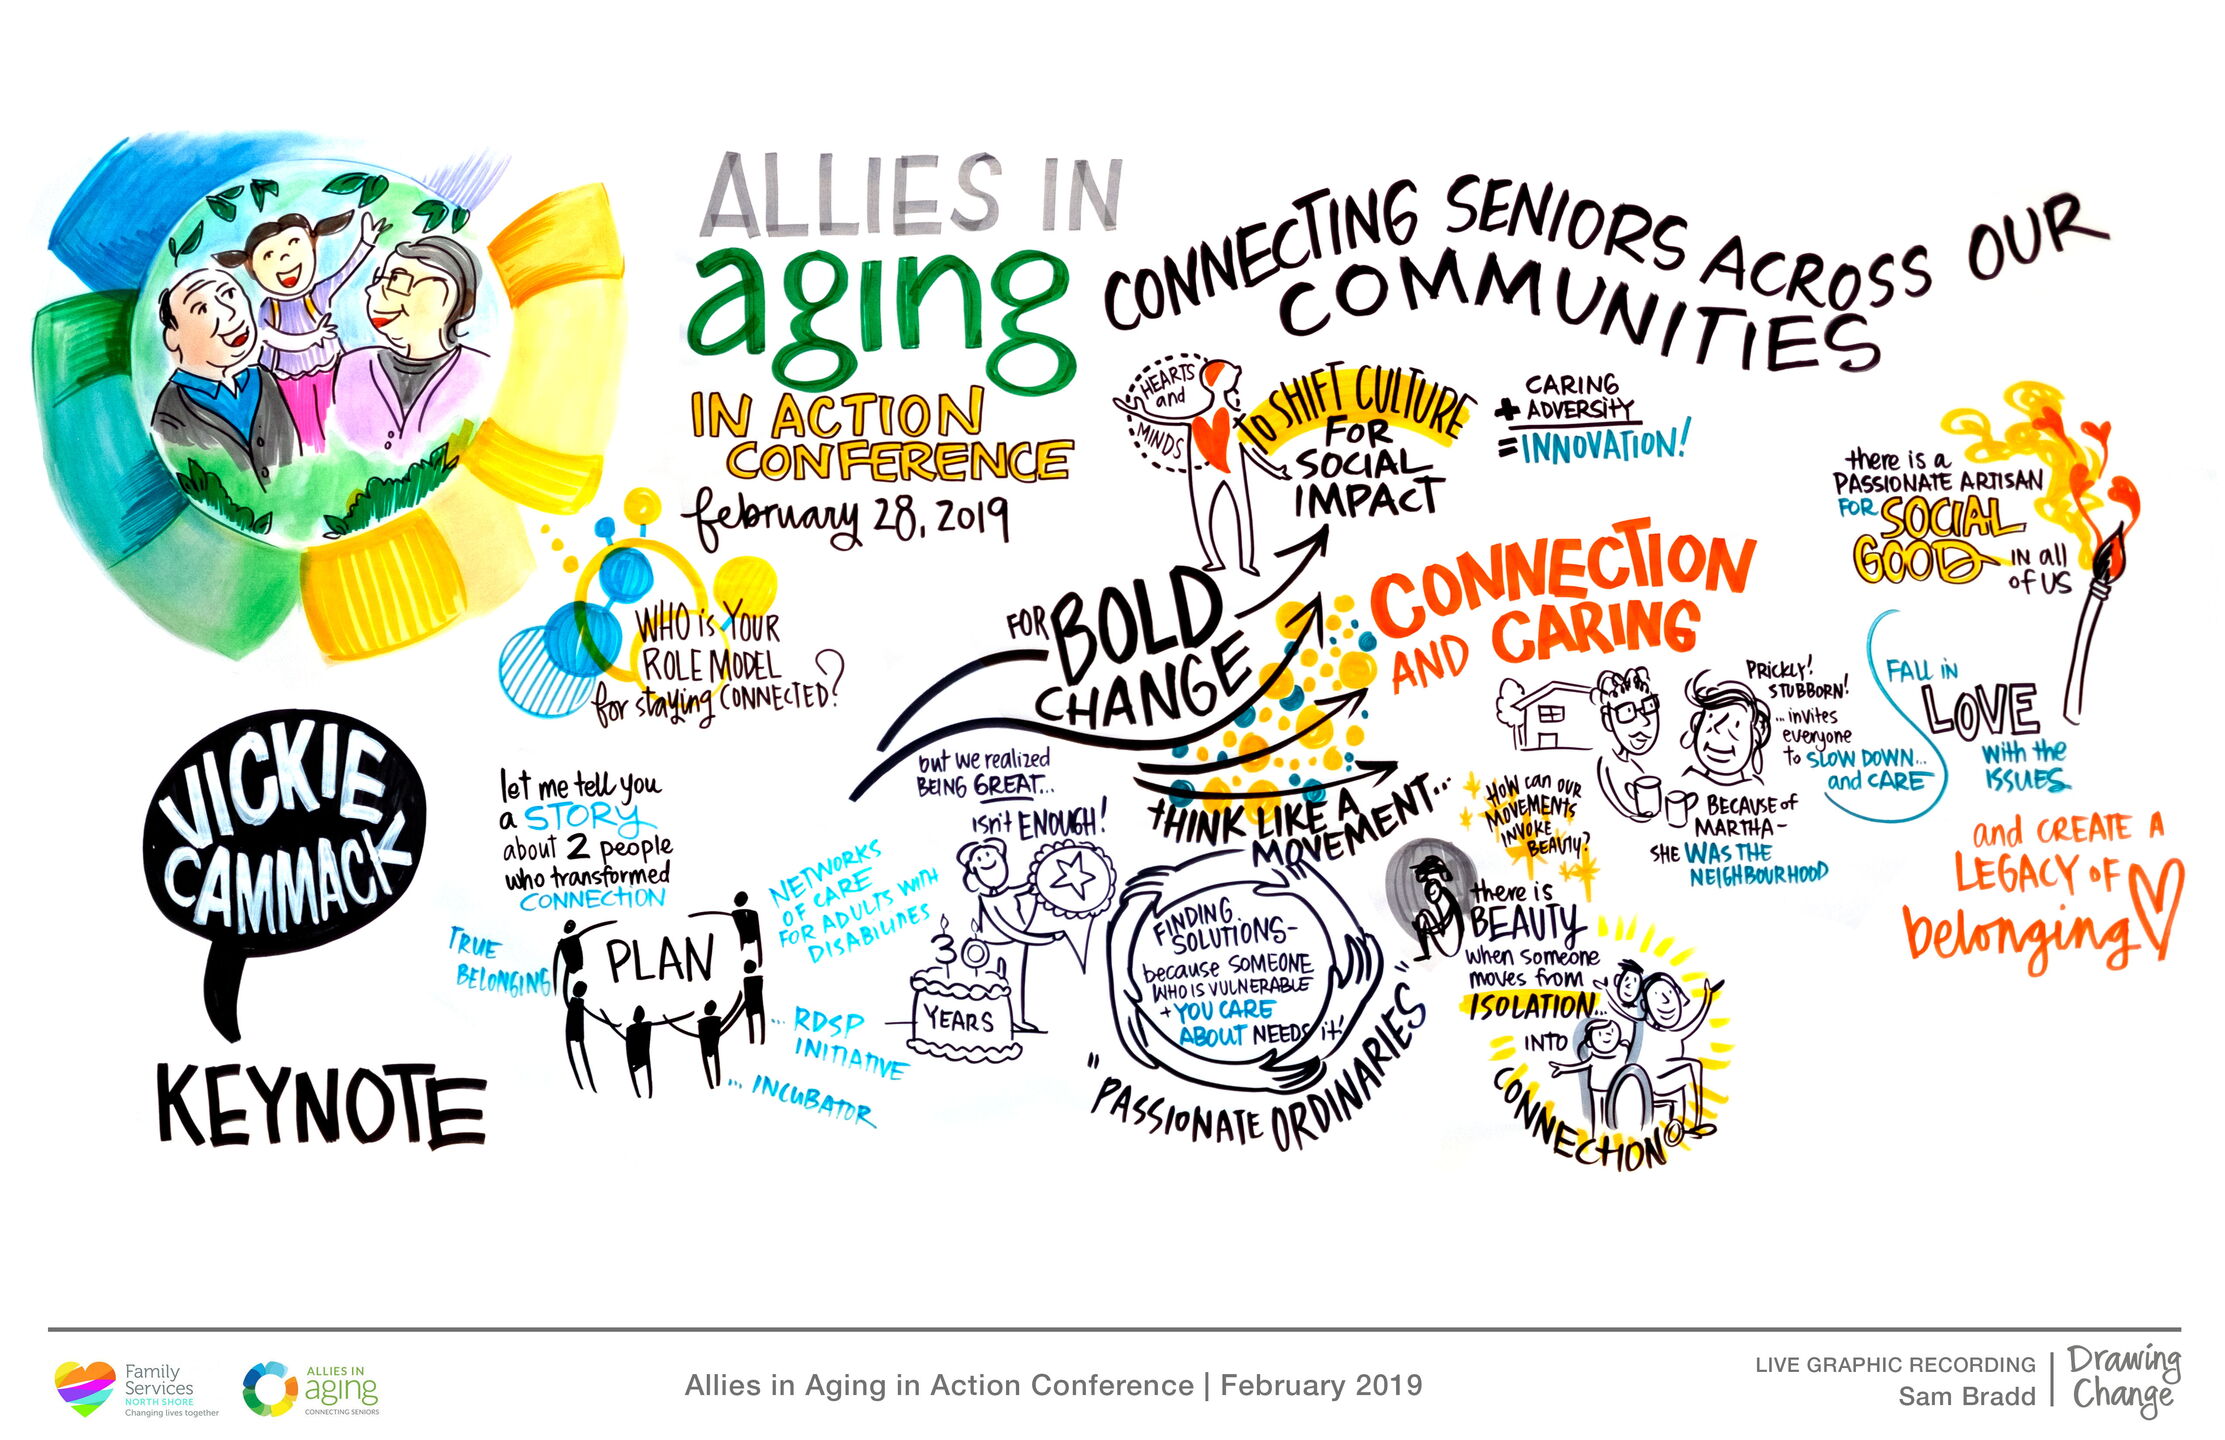 ALLIES IN
aging
IN ACTION
CONFERENCE
february 28, 2019
CONNECTING SENIORS ACROSS OUR
COMMUNITIES
WHO is YOUR
ROLE MODEL
for staying CONNECTED?
VICKIE
CAMMACK
KEYNOTE
let me tell you
a STORY
about 2 people
who transformed
CONNECTION
TRUE
BELONGING
PLAN
NETWORKS
OF CARE
FOR ADULTS WITH
DISABILITIES
... RDSP
INITIATIVE
... INCUBATOR
but we realized
BEING GREAT...
isn't ENOUGH!
30
YEARS
FOR BOLD
CHANGE
HEARTS
and
MINDS
to SHIFT CULTURE
FOR
SOCIAL
IMPACT
CARING
+ ADVERSITY
= INNOVATION!
CONNECTION
AND CARING
THINK LIKE A
MOVEMENT...
FINDING
SOLUTIONS-
because SOMEONE
WHO IS VULNERABLE
+ YOU CARE
ABOUT NEEDS it!
"PASSIONATE ORDINARIES"
HOW can OUR
MOVEMENTS
INVOKE
BEAUTY?
there is
BEAUTY
when someone
moves from
ISOLATION...
INTO
CONNECTION
PRICKLY!
STUBBORN!
... invites
everyone
to SLOW DOWN...
and CARE
BECAUSE of
MARTHA-
SHE WAS THE
NEIGHBOURHOOD
there is a
PASSIONATE ARTISAN
FOR SOCIAL
GOOD IN all
of US
FALL in
LOVE
with the
ISSUES
and CREATE A
LEGACY OF
belonging
Family
Services
NORTH SHORE
Changing lives together
ALLIES IN
aging
CONNECTING SENIORS
Allies in Aging in Action Conference | February 2019
LIVE GRAPHIC RECORDING
Sam Bradd
Drawing
Change